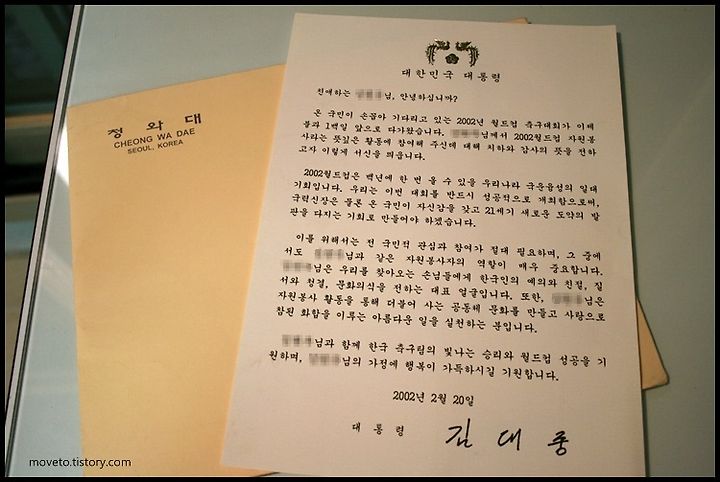 청 와 대
CHEONG WA DAE
SEOUL, KOREA
대한민국 대통령
친애하는 님, 안녕하십니까?
온 국민이 손꼽아 기다리고 있는 2002년 월드컵 축구대회가 이제
불과 1백일 앞으로 다가왔습니다. 님께서 2002월드컵 자원봉
사라는 뜻깊은 활동에 참여해 주신데 대해 치하와 감사의 뜻을 전하
고자 이렇게 서신을 띄웁니다.
2002월드컵은 백년에 한 번 올 수 있을 우리나라 국운융성의 일대
기회입니다. 우리는 이번 대회를 반드시 성공적으로 개최함으로써,
국력신장은 물론 온 국민이 자신감을 갖고 21세기 새로운 도약의 발
판을 다지는 기회로 만들어야 하겠습니다.
이를 위해서는 전 국민적 관심과 참여가 절대 필요하며, 그 중에
서도 님과 같은 자원봉사자의 역할이 매우 중요합니다.
님은 우리를 찾아오는 손님들에게 한국인의 예의와 친절, 질
서와 청결, 문화의식을 전하는 대표 얼굴입니다. 또한, 님은
자원봉사 활동을 통해 더불어 사는 공동체 문화를 만들고 사랑으로
참된 화합을 이루는 아름다운 일을 실천하는 분입니다.
님과 함께 한국 축구팀의 빛나는 승리와 월드컵 성공을 기
원하며, 님의 가정에 행복이 가득하시길 기원합니다.
2002년 2월 20일
대 통 령 김 대 중
moveto.tistory.com